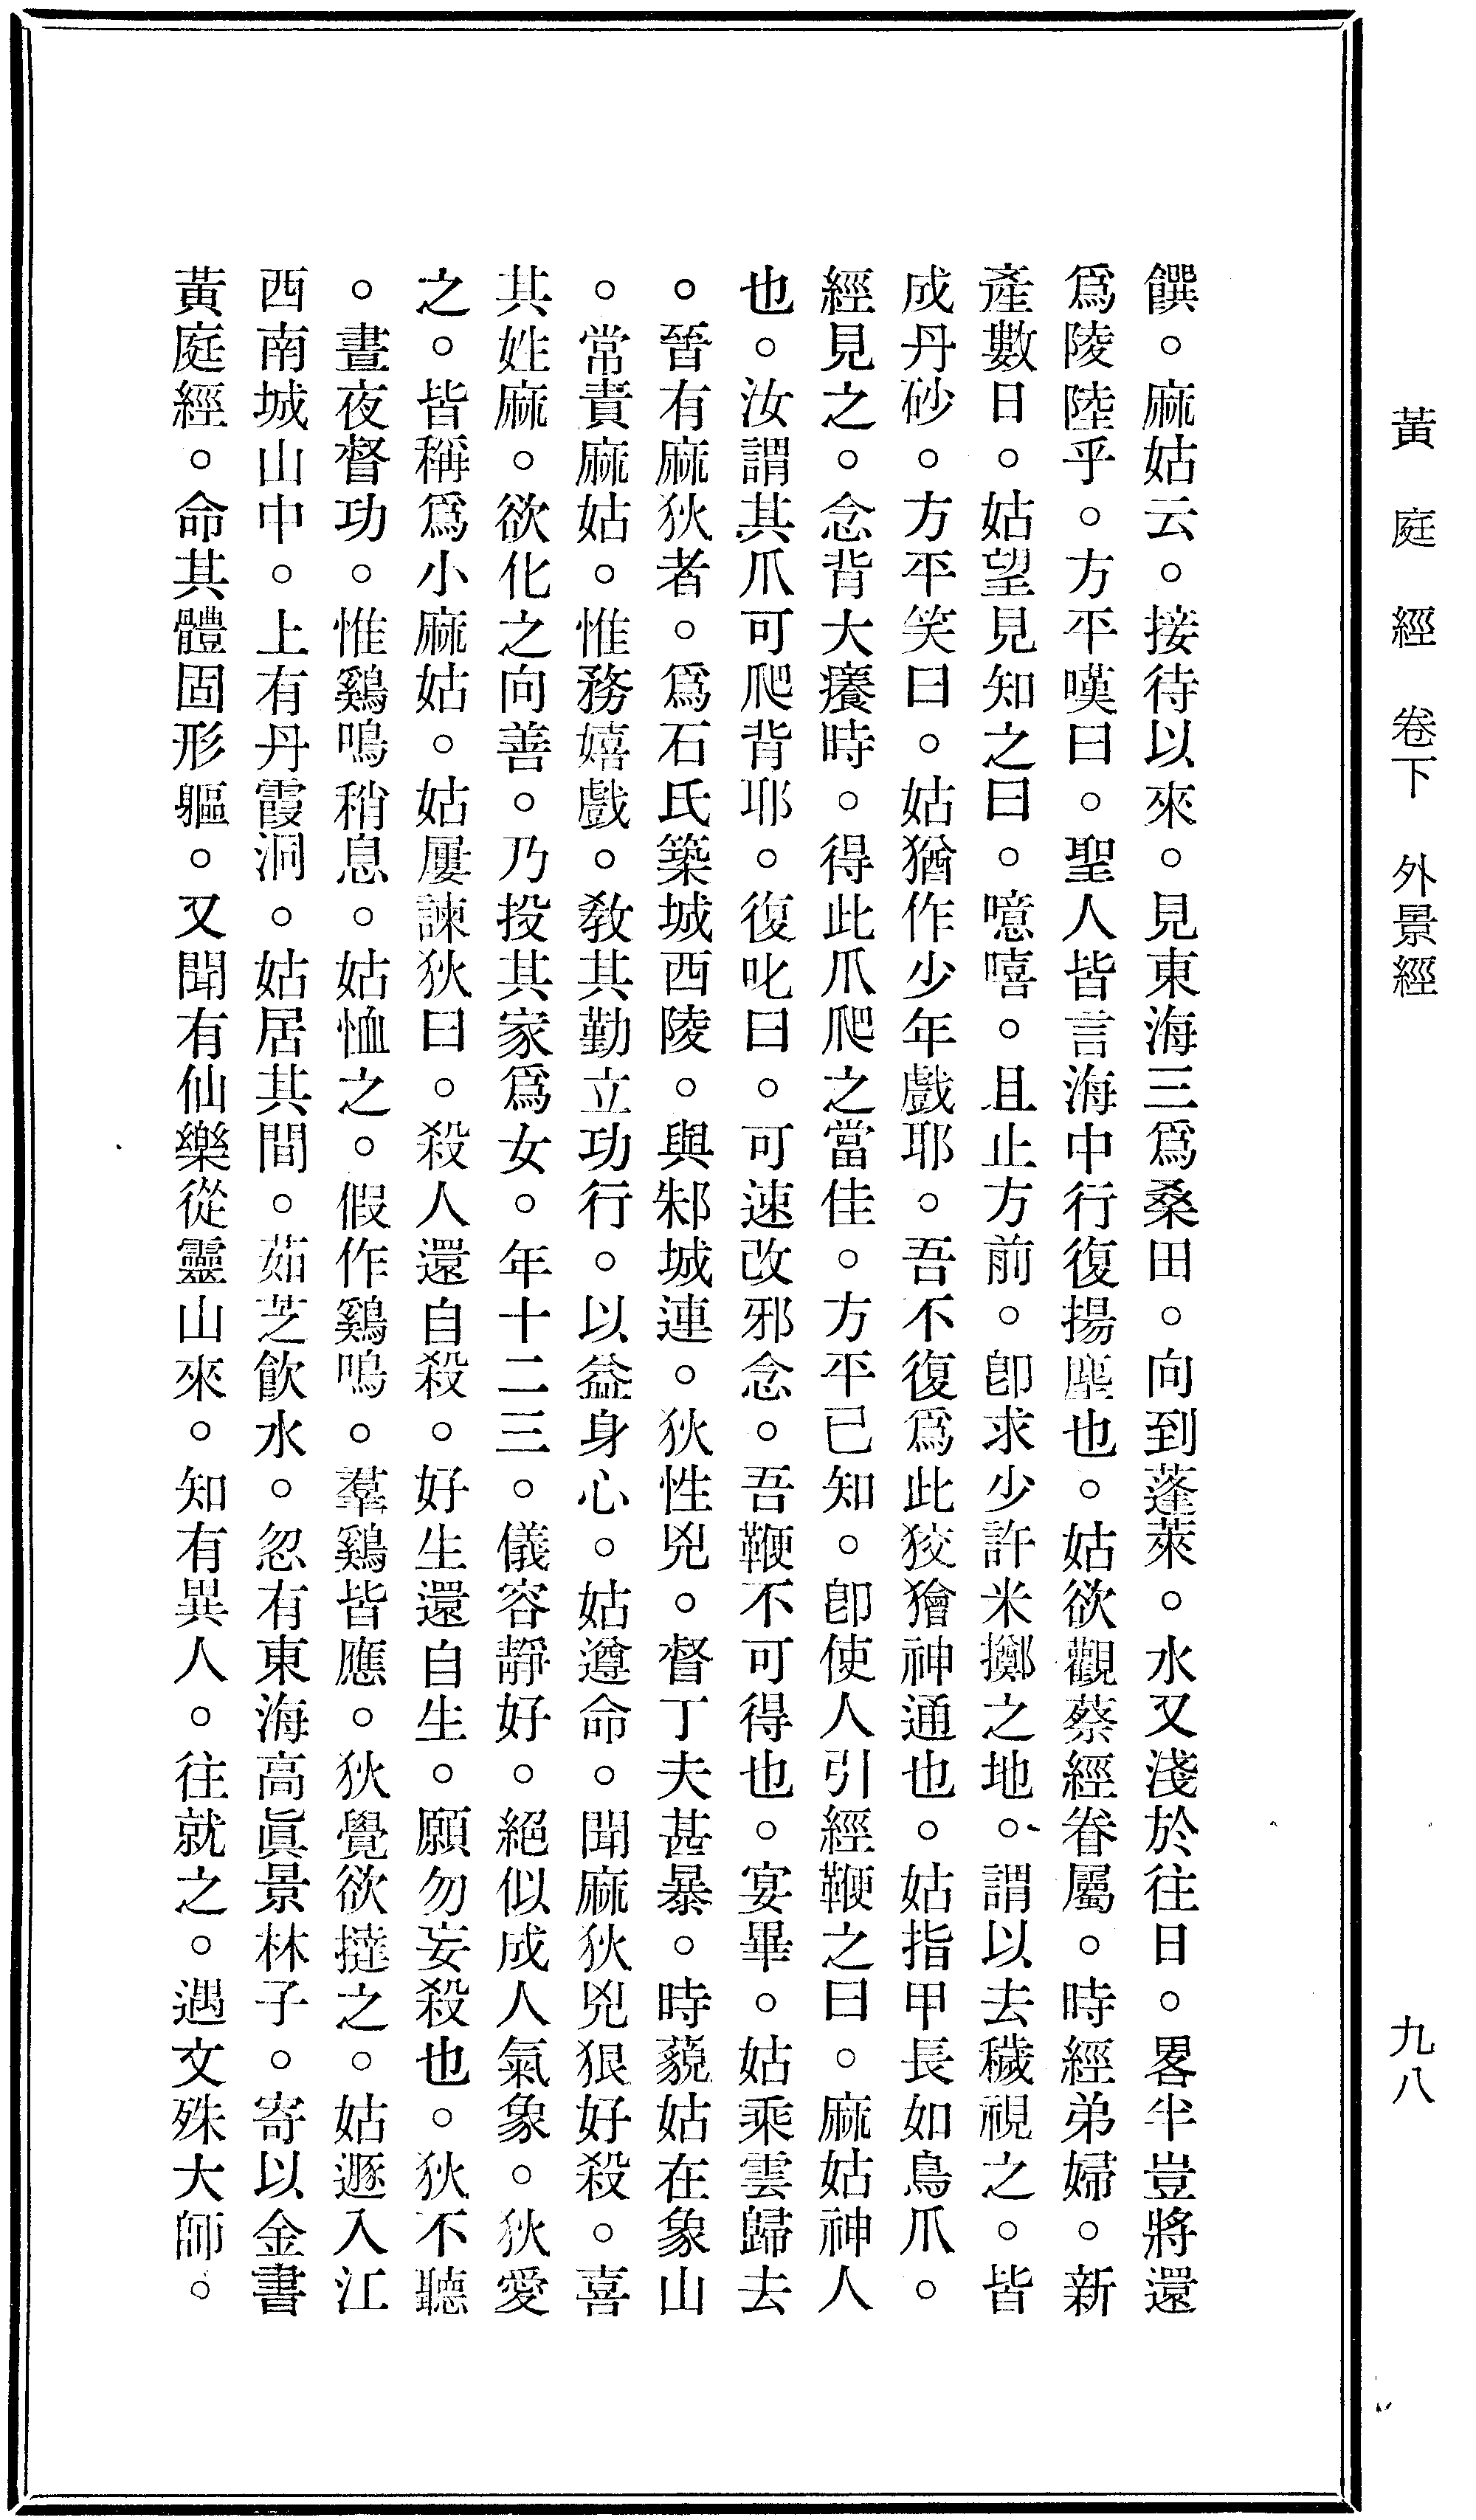 黃庭經 卷下 外景經 九八
饌。麻姑云。接待以來。見東海三爲桑田。向到蓬萊。水又淺於往日。畧半豈將還
爲陵陸乎。方平嘆曰。聖人皆言海中行復揚塵也。姑欲觀蔡經眷屬。時經弟婦。新
產數日。姑望見知之曰。噫嘻。且止方前。卽求少許米擲之地。謂以去穢視之。皆
成丹砂。方平笑曰。姑猶作少年戲耶。吾不復爲此狡獪神通也。姑指甲長如鳥爪。
經見之。念背大癢時。得此爪爬之當佳。方平已知。卽使人引經鞭之曰。麻姑神人
也。汝謂其爪可爬背耶。復叱曰。可速改邪念。吾鞭不可得也。宴畢。姑乘雲歸去
。晉有麻狄者。爲石氏築城西陵。與邾城連。狄性兇。督丁夫甚暴。時藐姑在象山
。常責麻姑。惟務嬉戲。敎其勤立功行。以益身心。姑遵命。聞麻狄兇狠好殺。喜
其姓麻。欲化之向善。乃投其家爲女。年十二三。儀容靜好。絕似成人氣象。狄愛
之。皆稱爲小麻姑。姑屢諫狄曰。殺人還自殺。好生還自生。願勿妄殺也。狄不聽
。晝夜督功。惟鷄鳴稍息。姑恤之。假作鷄鳴。羣鷄皆應。狄覺欲撻之。姑遯入江
西南城山中。上有丹霞洞。姑居其間。茹芝飮水。忽有東海高眞景林子。寄以金書
黃庭經。命其體固形軀。又聞有仙樂從靈山來。知有異人。往就之。遇文殊大師。